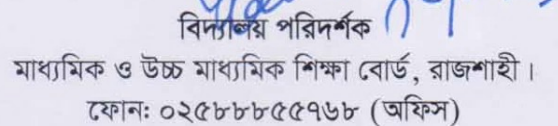 বিদ্যালয় পরিদর্শক
মাধ্যমিক ও উচ্চ মাধ্যমিক শিক্ষা বোর্ড, রাজশাহী।
ফোনঃ ০২৫৮৮৮৫৫৭৬৮ (অফিস)